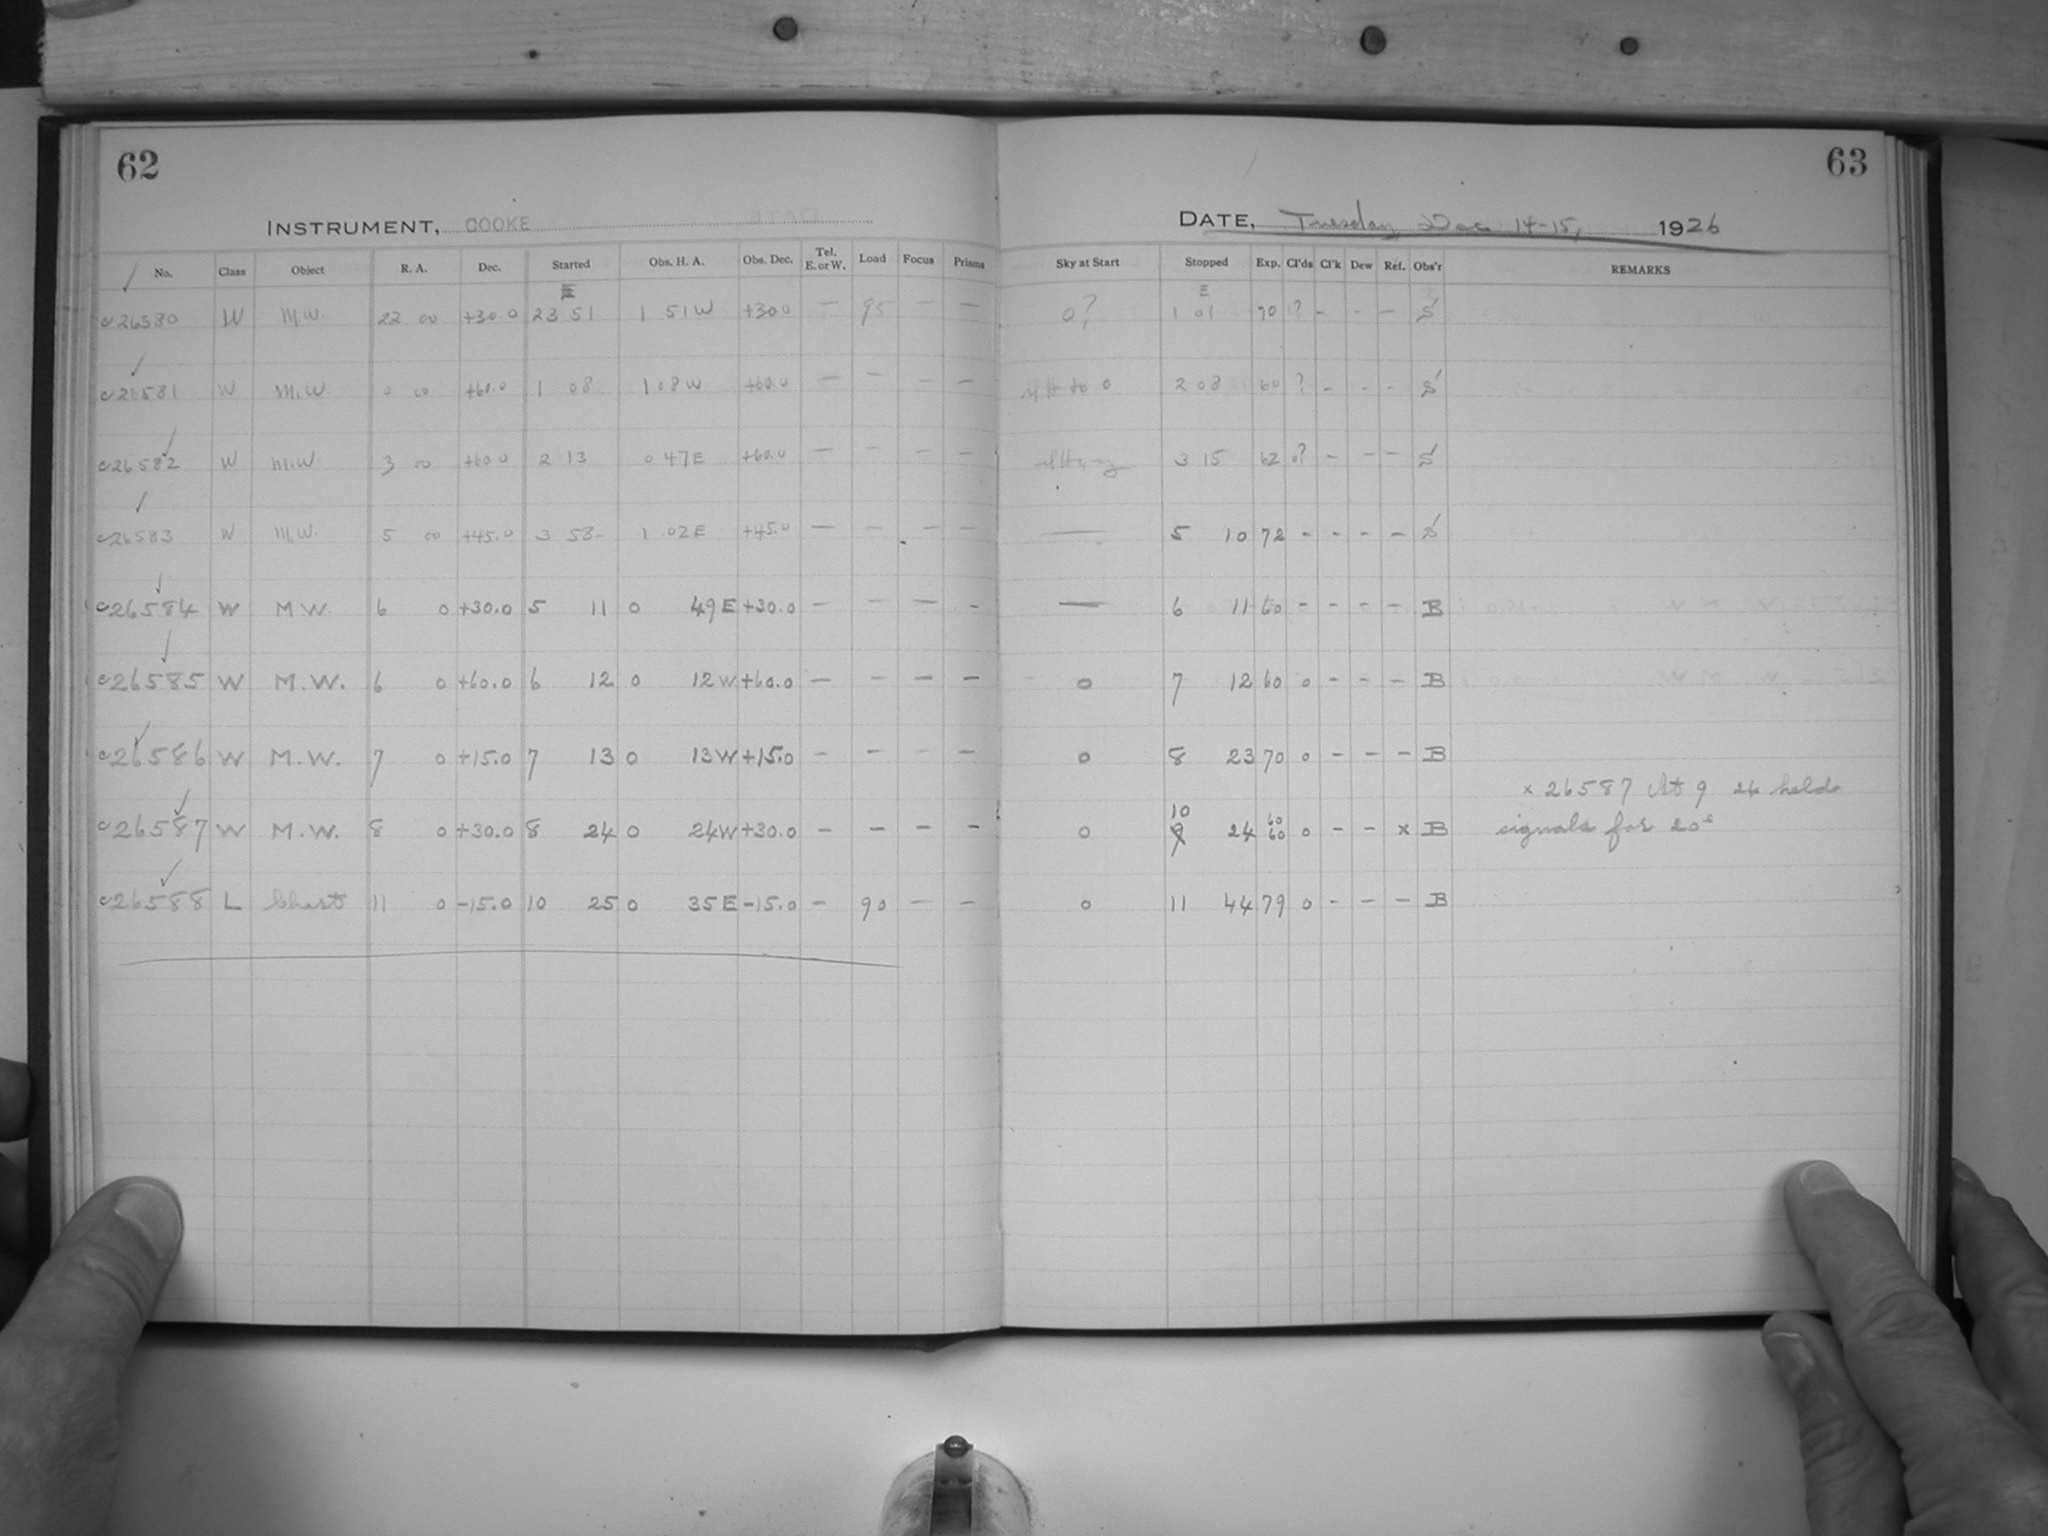 62
63
INSTRUMENT, COOKE
DATE, Tuesday, Dec 14-15, 1926
No. Class Object R. A. Dec. Started Obs. H. A. Obs. Dec. Tel. E. or W. Load Focus Prisms Sky at Start Stopped Exp. Cl'ds Cl'k Dew Ref. Obs'r REMARKS
E E
c26580 W M.W. 22 00 +30.0 23 51 1 51 W +30.0 — 95 — — 0? 1 01 70 ? - - - S'
c26581 W M.W. 0 00 +60.0 1 08 1 08 W +60.0 — — — — to 0 2 08 60 ? - - - S'
c26582 W M.W. 3 00 +60.0 2 13 0 47 E +60.0 — — — — 3 15 62 0? - - - S'
c26583 W M.W. 5 00 +45.0 3 58 1 02 E +45.0 — — — — — 5 10 72 - - - - S'
c26584 W M.W. 6 0 +30.0 5 11 0 49 E +30.0 — — — - — 6 11 60 - - - - B
c26585 W M.W. 6 0 +60.0 6 12 0 12 W +60.0 — — — — 0 7 12 60 0 - - - B
c26586 W M.W. 7 0 +15.0 7 13 0 13 W +15.0 — — — — 0 8 23 70 0 - - - B
x 26587 At 9 24 held
c26587 W M.W. 8 0 +30.0 8 24 0 24 W +30.0 — — — — 0 10 9 24 60 60 0 - - x B signals for 20s
c26588 L Chart 11 0 -15.0 10 25 0 35 E -15.0 — 90 — — 0 11 44 79 0 - - - B